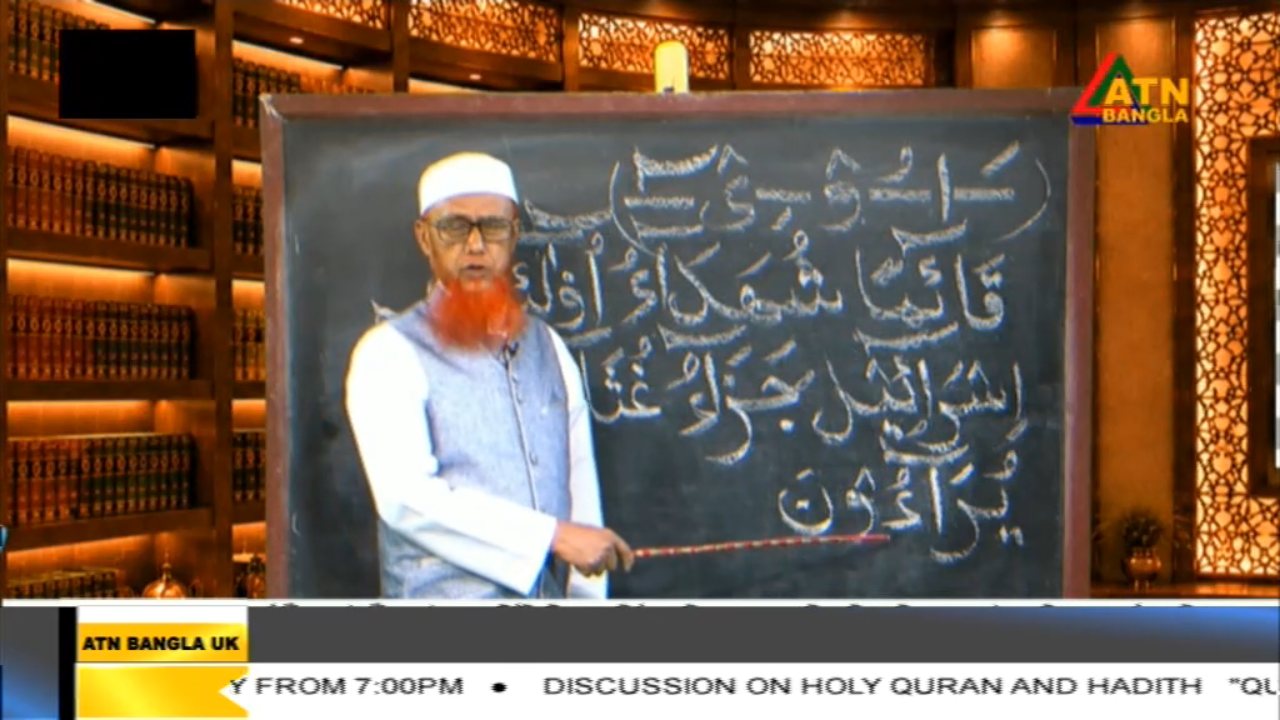 ATN
BANGLA
قَائِمًا شُهَدَاءُ
اِسْرَائِيْل جَزَاءُ غُثَا
يُرَاءُوْنَ
ATN BANGLA UK
Y FROM 7:00PM • DISCUSSION ON HOLY QURAN AND HADITH "QU